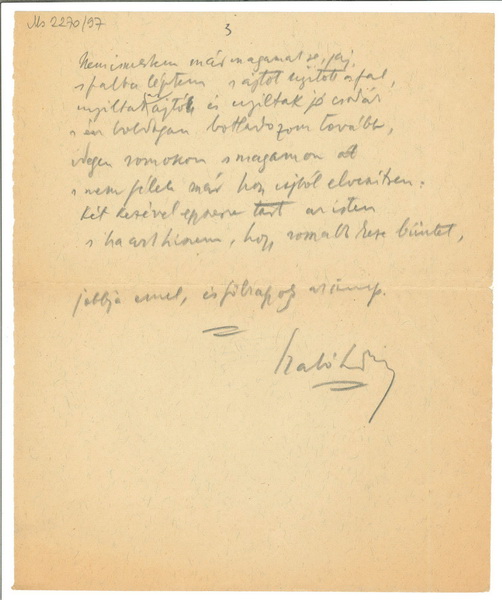 Ms 2270/97
3
Nem ismertem már magamat se, jaj,
s falba léptem s ajtót nyitott a fal,
nyíltak ajtók és nyíltak jó csodák
s én boldogan botladozom tovább,
idegen romokon s magamon át
s nem félek már, hogy ejtől elveszítsen:
két kezével egyszerre tart az isten
s ha azt hiszem, hogy romább keze büntet,

jobbja emel, és fölragyog az ünnep.
Szabó Lőrinc